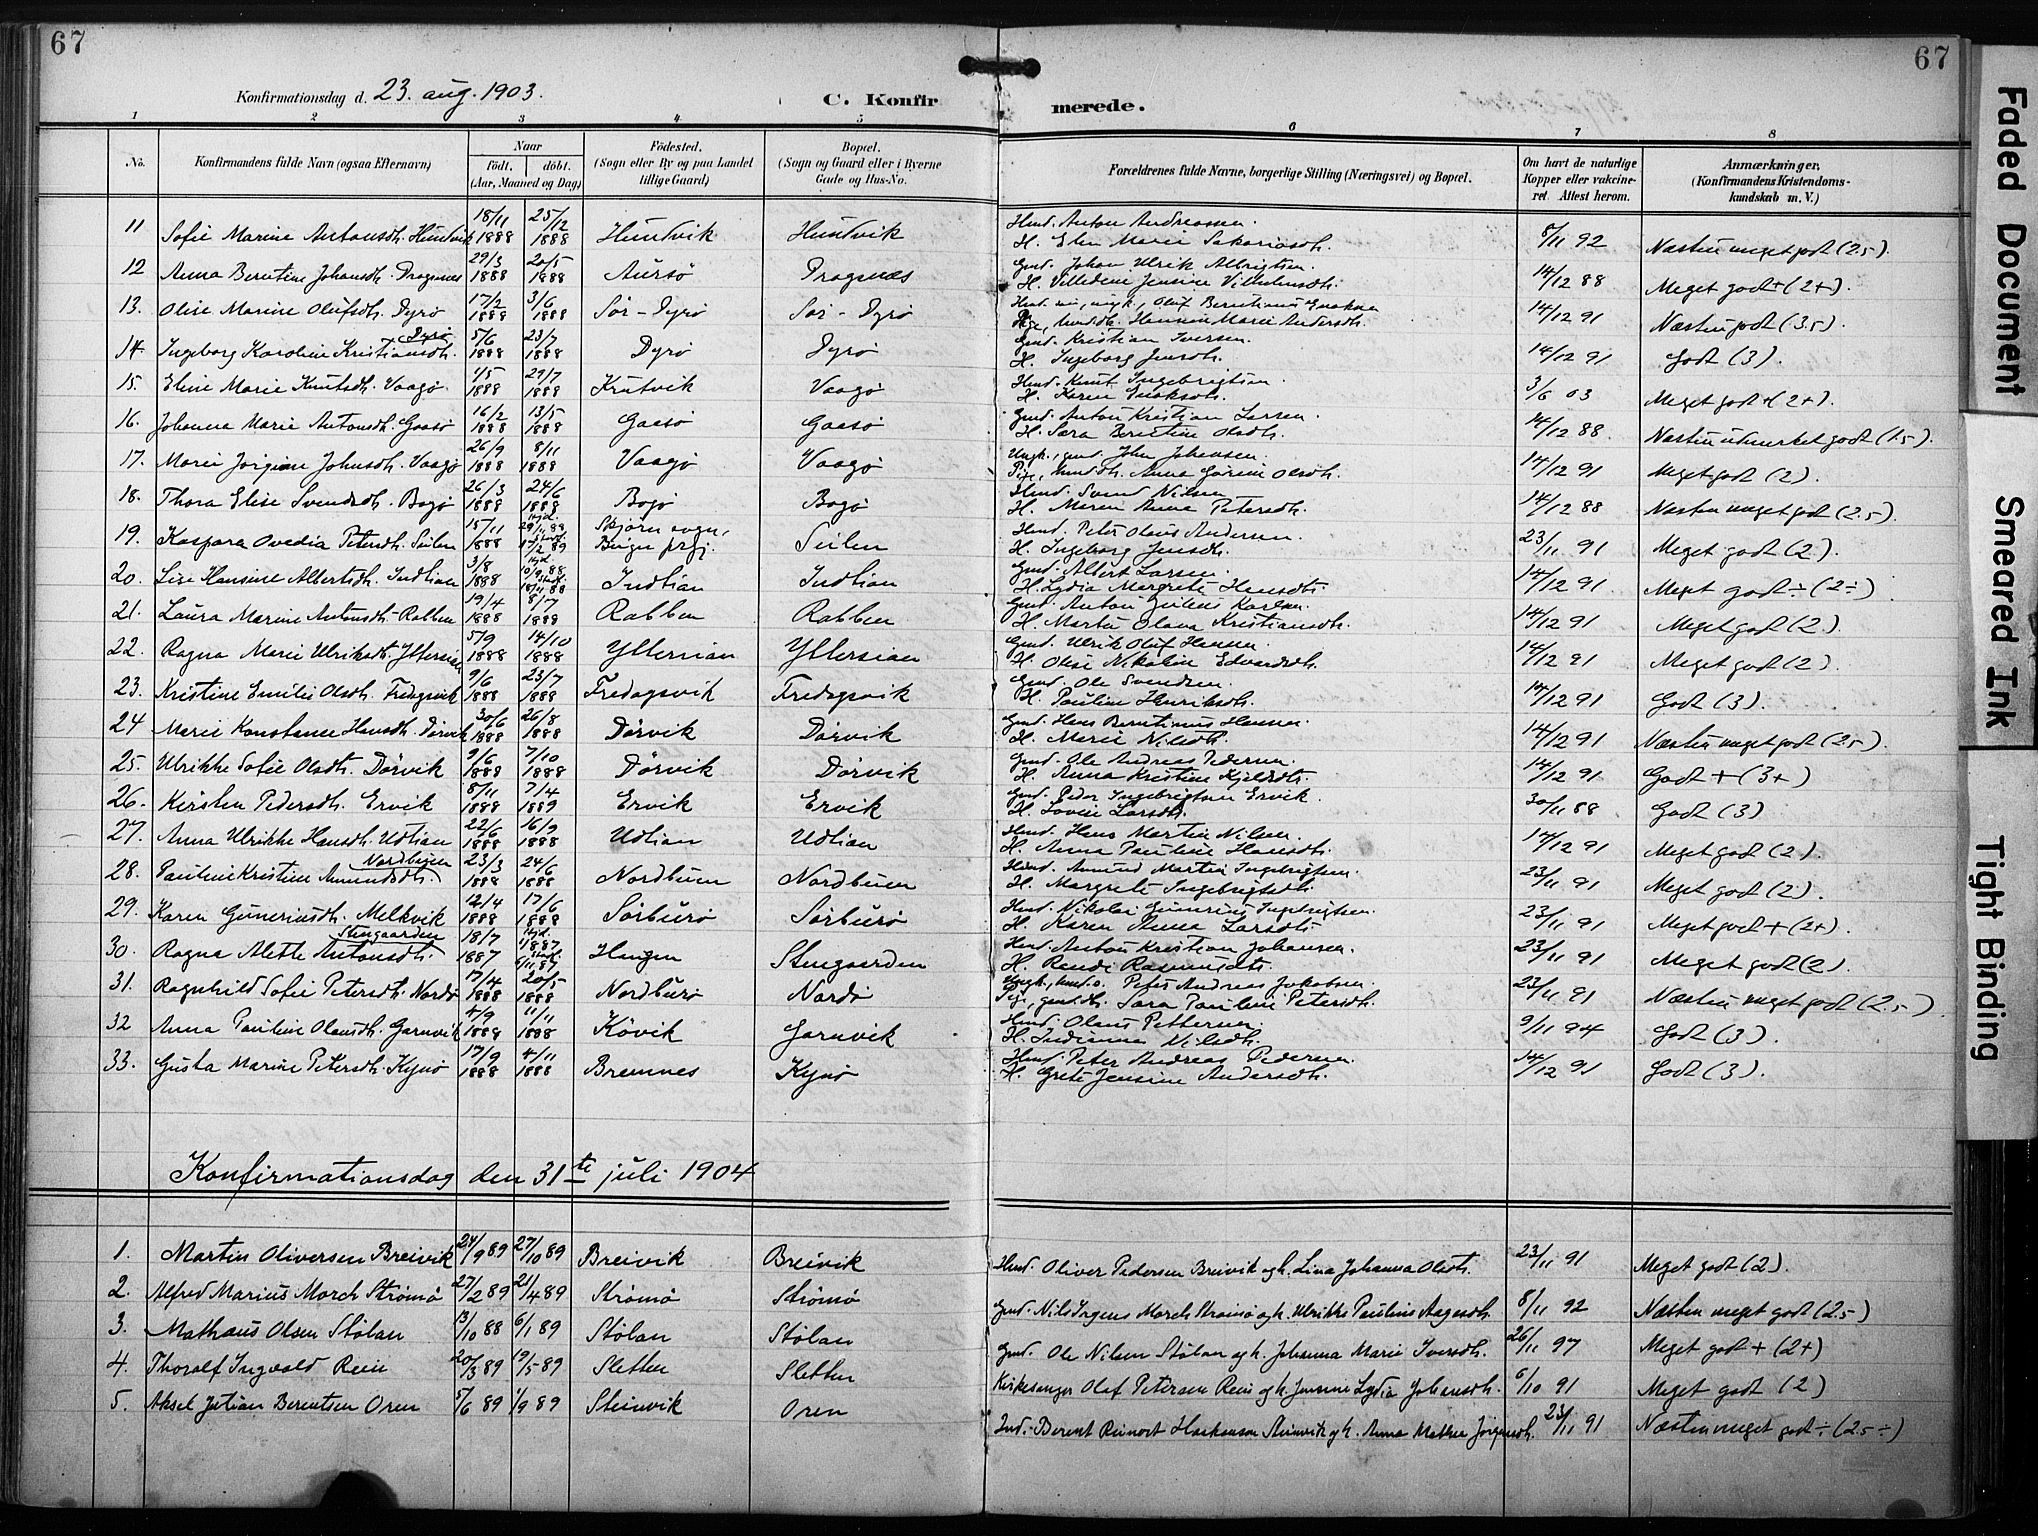 67
67
Konfirmationsdag d. 23. aug. 1903.
C. Konfirmerede.
1 2 3 4 5 6 7 8
No. Konfirmandens fulde Navn (ogsaa Efternavn) Naar født. døbt. (Aar, Maaned og Dag) Fødested. (Sogn eller By og paa Landet tillige Gaard) Bopæl. (Sogn og Gaard eller i Byerne Gade og Hus-No. Forældrenes fulde Navne, borgerlige Stilling (Næringsvei) og Bopæl. Om havt de naturlige Kopper eller vakcineret. Attest herom. Anmærkninger, (Konfirmandens Kristendomskundskab m. V.)
11 Sofie Marine Antonsdh. Huntvik 18/11 1888 25/12 1888 Huntvik Huntvik Hmd. Anton Andreassen H. Elen Marie Sakariasdh. 8/11 92 Næsten meget godt (2.5).
12 Anna Berntine Johansdh. Dragsnes 29/3 1888 20/5 1888 Aursø Dragsnæs Gmd. Johan Ulrik Albrigtsen H. Villedine Jensine Vilhelmsdh. 14/12 88 Meget godt+(2+).
13. Olise Marine Olufsdh. Dyrø 17/2 1888 3/6 1888 Sør-Dyrø Sør-Dyrø Oluf Berntinus Hansine Marie Andersdh. 14/12 91 Næsten godt (3.5).
14. Ingeborg Karoline Kristiansdh. Dyrø 5/6 1888 23/7 1888 Dyrø Dyrø Gmd. Kristian Iversen. H. Ingeborg Jensdh. 14/12 91 Godt (3).
15. Eline Marie Knutsdh. Vaagø. 1/5 1888 29/7 1888 Krutvik Vaagø Hmd. Knut Ingebrigtsen H. Karen Isaksdh. 3/6 03 Meget godt+(2+).
16. Johanna Marie Antonsdh. Gaasø 16/2 1888 13/5 1888 Gaasø Gaasø Gmd. Anton Kristian Larsen. H. Sara Berntine Olsdh. 14/12 88 Næsten utmerket godt (1.5).
17. Marie Jørgine Johnsdh. Vaagø 26/9 1888 8/11 1888 Vaagø Vaagø Ungk., gmd. John Johansen. Pige, hmddh. Anna Gurine Olsdh. 14/12 91 Meget godt (2).
18. Thora Elise Svendsdh. Bogø 26/3 1888 24/6 1888 Bogø Bogø Hmd. Svend Nilsen H. Maren Anne Petersdh. 14/12 88 Næsten meget godt (2.5).
19. Kaspara Ovedia Petersdh. Seilen 15/11 1888 Hjd. 29/11 88 17/2 89 Skjørn sogn, Bugn prgj. Seilen Hmd. Peter Olaus Andersen. H. Ingeborg Jensdh. 23/11 91 Meget godt (2).
20. Lise Hansine Albertsdh. Indtian 3/8 1888 Hjd. 10/9 88 18/11 88 Indtian Indtian Gmd. Albert Larsen. H. Lydia Margrete Hansdh. 14/12 91 Meget godt ÷ (2÷)
21. Laura Marine Antonsdh. Rabben 19/4 1888 8/7 1888 Rabben Rabben Gmd. Anton Julius Karlsen H. Marta Olava Kristiansdh. 14/12 91 Meget godt (2).
22. Ragna Marie Ulriksdh. Yttersian 5/9 1888 14/10 1888 Yttersian Yttersian Gmd. Ulrik Oluf Hansen H. Olise Nikoline Edvardsdh. 14/12 91 Meget godt (2).
23. Kristine Emilie Olsdh. Fredagsvik 9/6 1888 23/7 1888 Fredagsvik Fredagsvik Gmd. Ole Svendsen. H. Pauline Henriksdh. 14/12 91 Godt (3).
24 Marie Konstanse Hansdh. Dørvik 30/6 1888 26/8 1888 Dørvik Dørvik Gmd. Hans Berntinus Hansen. H. Marie Nilsdh. 14/12 91 Næsten meget godt (2.5).
25. Ulrikke Sofie Olsdh. Dørvik 9/6 1888 7/10 1888 Dørvik Dørvik Gmd. Ole Andreas Pedersen. H. Anna Kristine Kjeldsdh. 14/12 91 Godt + (3+)
26. Kirsten Pedersdh. Ervik 8/11 1888 7/4 1889 Ervik Ervik Gmd. Peder Ingebrigtsen Ervik. H. Lovise Larsdh. 30/11 88 Godt (3)
27. Anna Ulrikke Hansdh. Udtian 22/6 1888 16/9 1888 Udtian Udtian Hmd. Hans Martin Nilsen. H. Anna Pauline Hansdh. 14/12 91 Meget godt (2).
28. Pauline Kristine Amundsdh. Nordbuen 23/3 1888 24/6 1888 Nordbuen Nordbuen Hmd. Amund Martin Ingebrigtsen. H. Margrete Ingebrigtsdh. 23/11 91 Meget godt (2).
29. Karen Guneriusdh. Melkvik 12/4 1888 17/6 1888 Sørburø Sørburø Hmd. Nikolai Gunerius Ingebrigtsen. H. Karen Anna Larsdh. 23/11 91 Meget godt + (2+).
30. Ragna Alette Antonsdh. Stengaarden 18/7 1887 Hjd. 1/8 87 6/11 87 Haugen Stengaarden Hmd. Anton Kristian Johansen. H. Randi Rasmusdh. 23/11 91 Meget godt (2).
31. Ragnhild Sofie Petersdh. Nordø 17/4 1888 20/5 1888 Nordburø Nordø Ungk., hmd.s. Peter Andreas Jakobsen. Pige, gmd.dh. Sara Pauline Petersdh. 23/11 91 Næsten meget godt (2.5-)
32 Anna Pauline Olausdh. Garnvik 4/9 1888 11/11 1888 Køvik Garnvik Hmd. Olaus Pettersen. H. Indianna Nilsdh. 9/11 94 Godt (3).
33. Gusta Marine Petersdh. Kynø 17/9 1888 4/11 1888 Bremnes Kynø Hmd. Peter Andreas Pedersen. H. Grete Jensine Andersdh. 14/12 91 Godt (3).
Konfirmationsdag den 31te juli 1904
1. Martin Oliversen Breivik 24/9 89 27/10 89 Breivik Breivik Hmd. Oliver Pedersen Breivik og h. Lina Johanna Olsdh. 23/11 91 Meget godt (2).
2. Alfred Marius Morch Strømø 27/2 89 21/4 89 Strømø Strømø Gmd. Nils Irgens Morch Strømø og h. Ulrikke Pauline Aagesdh. 8/11 92 Næsten meget godt (2.5-)
3. Mathæus Olsen Stølan 13/10 88 6/1 89 Stølan Stølan Gmd. Ole Nilsen Stølan og h. Johanna Marie Iversdh. 26/11 97 Meget godt + (2+)
4. Thoralf Ingvald Rein 20/3 89 19/5-89 Sletten Sletten Kirkesanger Olaf Petersen Rein og h. Jensine Lydia Johansdh. 6/10 91 Meget godt (2)
5. Aksel Julian Berentsen Oren 5/6 89 1/9 89 Steinvik Oren Ind. Berent Reinort Haakonsen Steinvik og h. Anna Mathea Jørgensdh. 23/11 91 Næsten meget godt ÷ (2.5 ÷)
Faded Document
Smeared Ink
Tight Binding